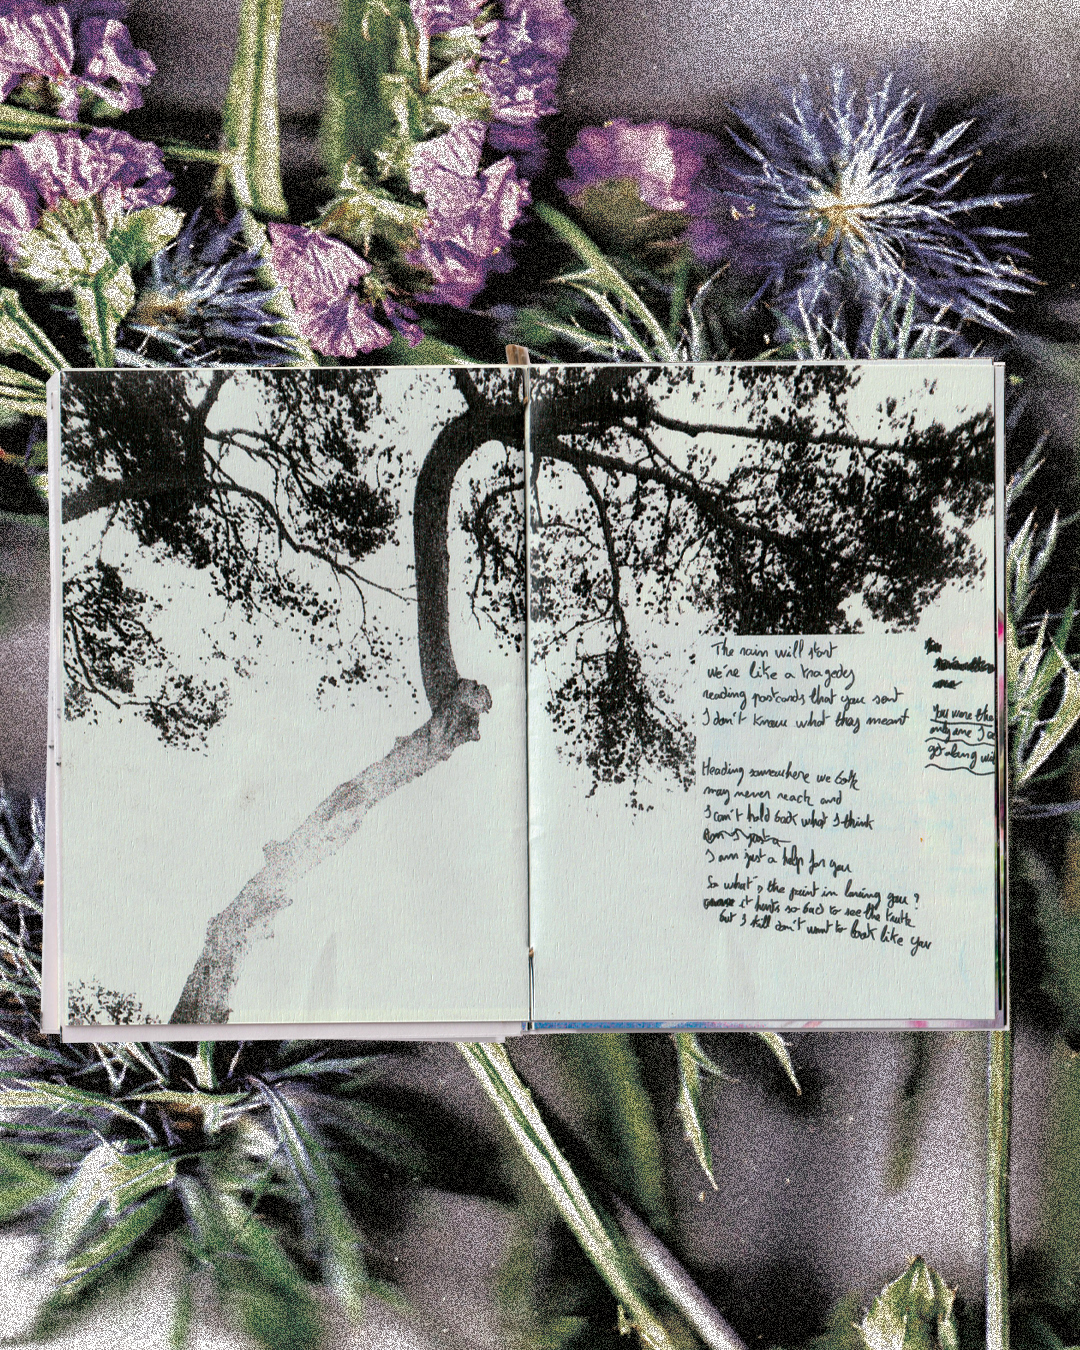 The rain will start
we're like a tragedy
reading postcards that you sent
I don't know what they meant
Heading somewhere we both
may never reach and
I can't hold back what I think
I am just a help for you
So what's the point in loving you?
it hurts so bad to see the truth
but I still don't want to look like you
You were the
only one I
get along